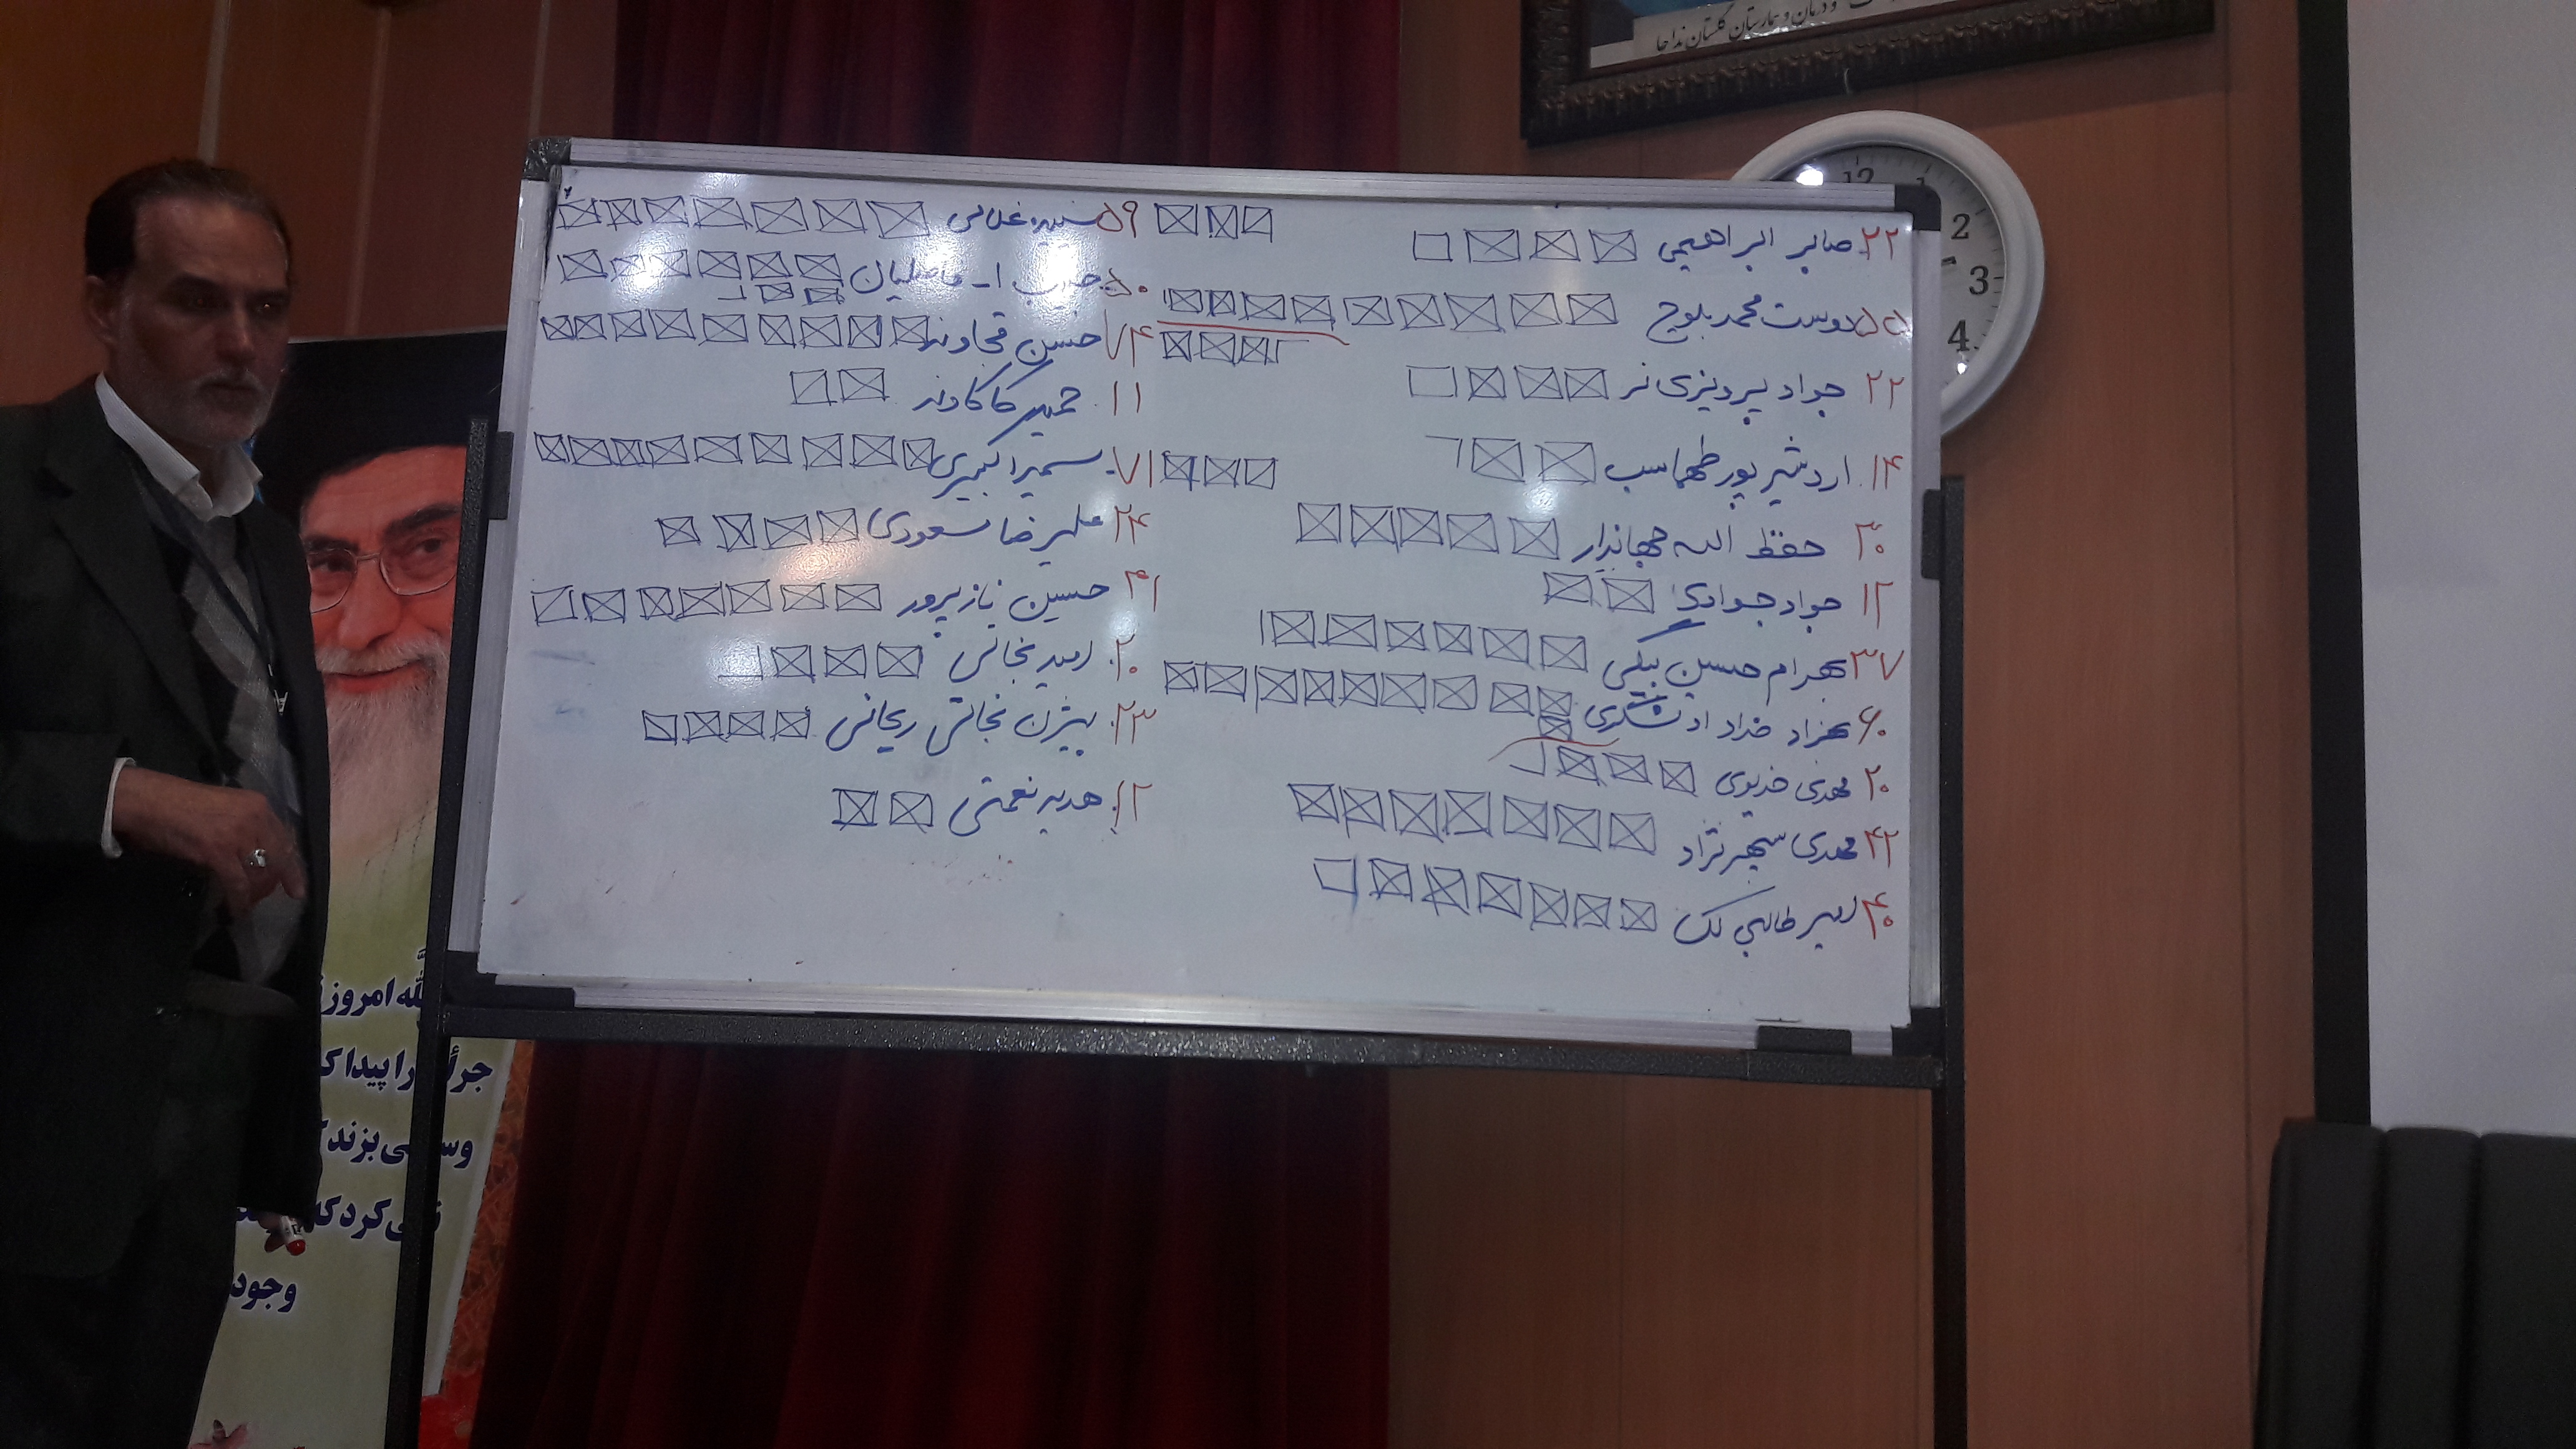 و درمان و بیمارستان گلستان نداجا
12
1
2
3
4
۲۲ صابر ابراهیمی
۵۵ دوست محمد بلوچ
۲۲ جواد پرویزی نر
۱۴. اردشیر پور طهماسب
۳۰ حفظ الله جهاندار
۱۲ جواد جوادی
۳۷ بهرام حسین بیگی
۶۰ بهزاد خداداد
۲۰ مهدی خدیوی
۴۲ مهدی سپهرنژاد
۴۰ امیر طالبی لک
۵۹ غلامی
۵۰.
۷۴ حسن قجاوند
۱۱. حمید کاکاوند
۷۱ سمیرا کبیری
۲۴ علیرضا مسعودی
۴۱ حسین نازپرور
۲۰. امید نجاتی
۲۳. بیژن نجاتی ریحانی
۱۲. هدیه نعمتی
الله امروز
جرأ را پیدا ک
بزند
ی کرد که
وجود